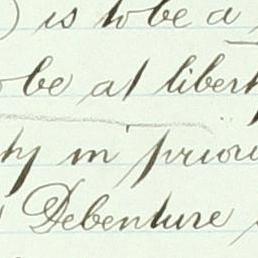 ) is to be a
be at liberty
in priori
Debenture